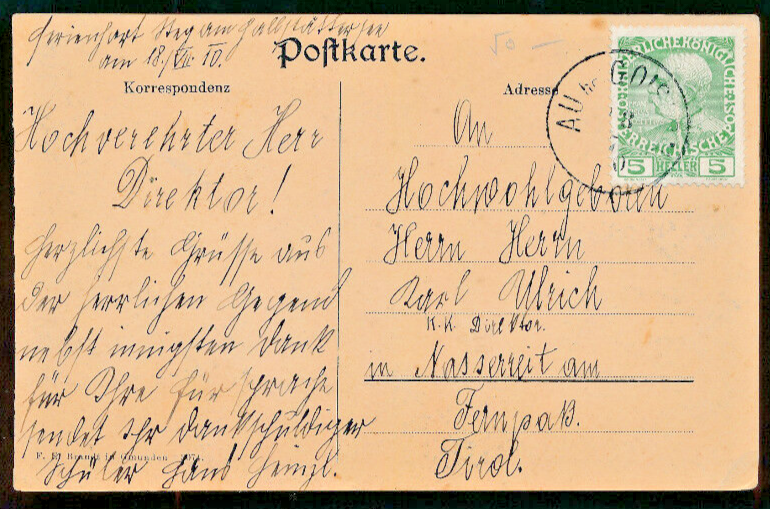 Ferienhort Steg am Hallstättersee
am 18./VII. 10.
Postkarte.
50 —
Korrespondenz
Hochverehrter Herr
Direktor!
Herzlichste Grüsse aus
der herrlichen Gegend
nebst innigsten Dank
für Ihre Fürsprache
sendet Ihr dankschuldiger
Schüler Hans Heinzl.
F. E. Brandt in Gmunden
Adresse
An
Hochwohlgeboren
Herrn Herrn
Karl Ulrich
K.K. Direktor.
in Nassereit am
Fernpaß.
Tirol.
KAISERLICHE KÖNIGLICHE
ÖSTERREICHISCHE POST
5 HELLER 5
AU
GOIS